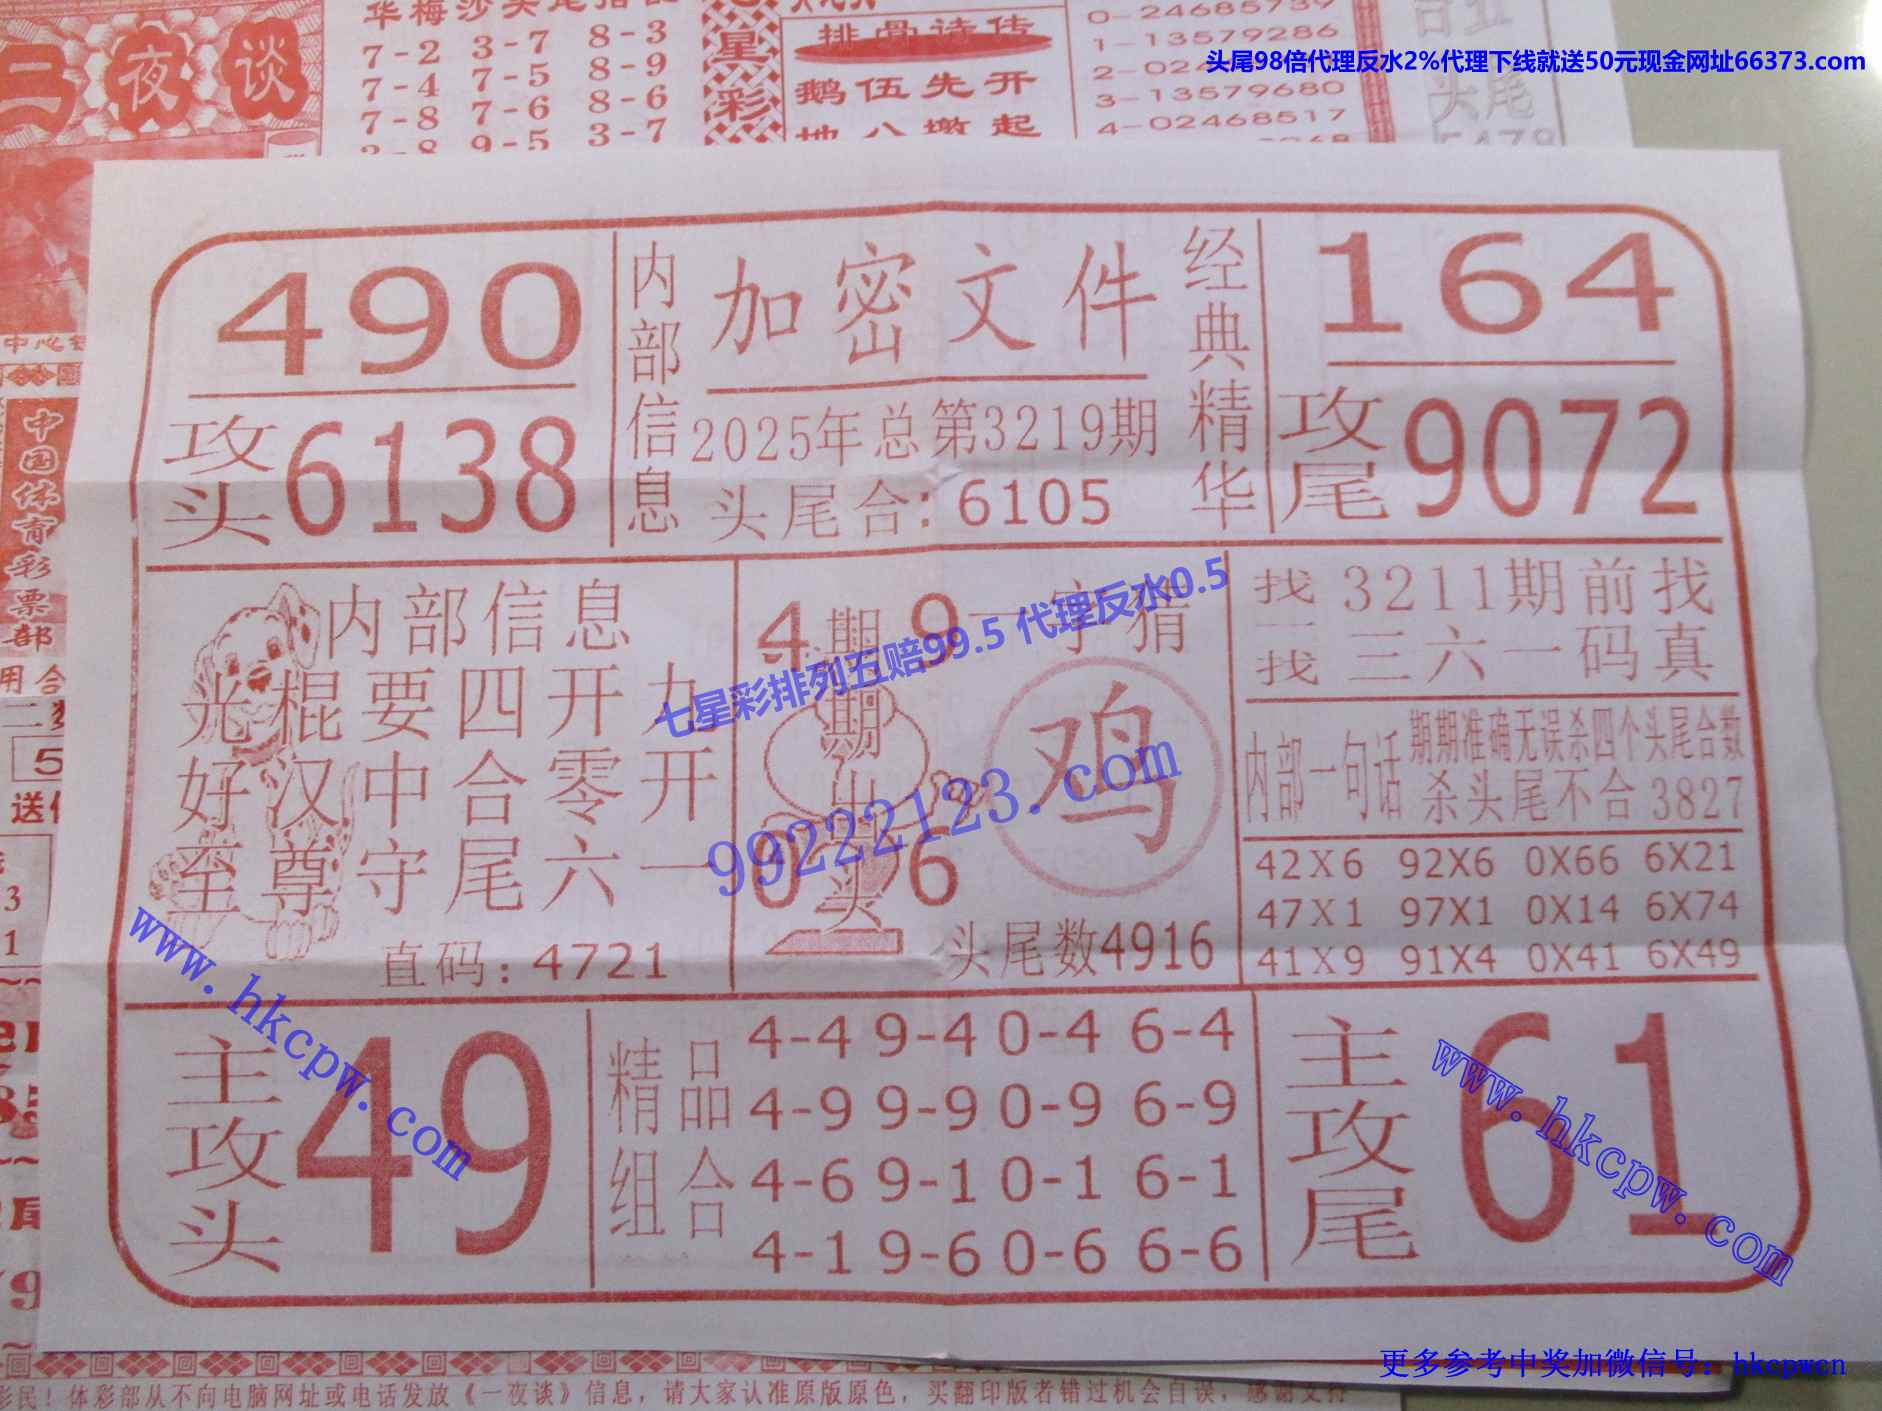 二夜谈
7-2 3-7 8-3
7-4 7-5 8-9
7-8 7-6 8-6
9-5 3-7
星彩
排骨诗传
鹅伍先开
地八墩起
0-24685739
1-13579286
3-13579680
4-02468517
头尾
头尾98倍代理反水2%代理下线就送50元现金网址66373.com
中国体育彩票部
490
攻头6138
内部信息
加密文件
2025年总第3219期
头尾合:6105
经典精华
164
攻尾9072
内部信息
光棍要四开九
好汉中合零开
至尊守尾六一
直码:4721
4 9
期期出头
0 6
一字猜
鸡
头尾数4916
找一找
3211期前找
三六一码真
内部一句话
期期准确无误杀四个头尾合数
杀头尾不合3827
42X6 92X6 0X66 6X21
47X1 97X1 0X14 6X74
41X9 91X4 0X41 6X49
主攻头
49
精品组合
4-4 9-4 0-4 6-4
4-9 9-9 0-9 6-9
4-6 9-1 0-1 6-1
4-1 9-6 0-6 6-6
主攻尾
61
七星彩排列五赔99.5 代理反水0.5
99222123.com
www.hkcpw.com
www.hkcpw.com
更多参考中奖加微信号:hkcpwcn
彩民!体彩部从不向电脑网址或电话发放《一夜谈》信息,请大家认准原版原色,买翻印版者错过机会自误,感谢支持